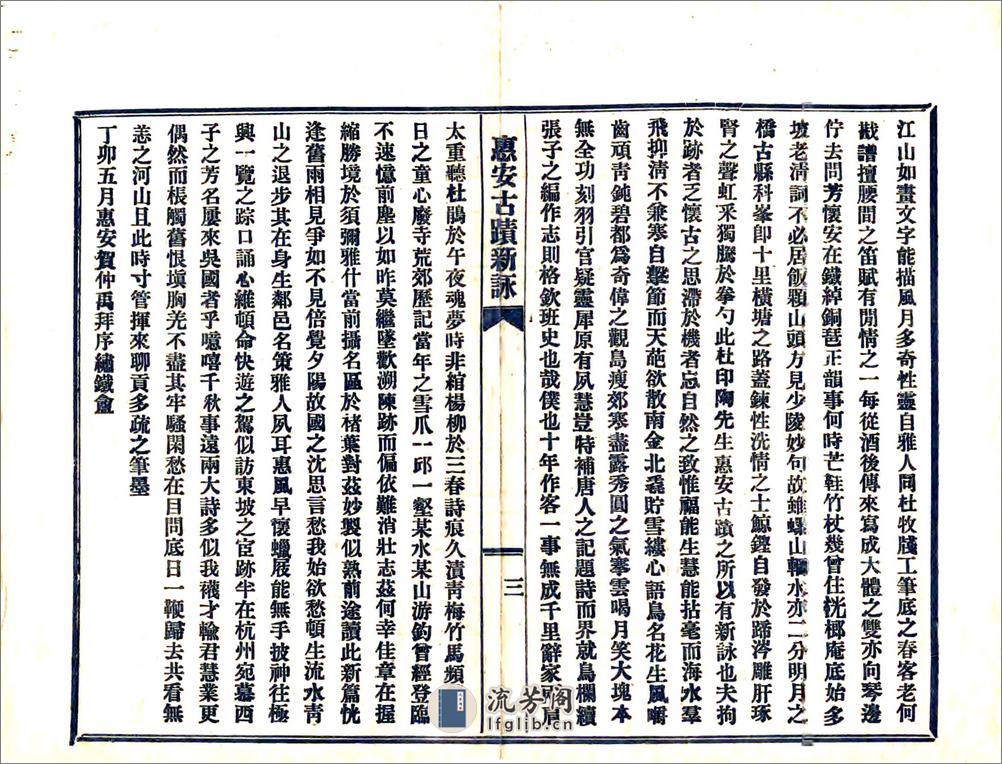 江山如畫文字能描風月多奇性靈自雅人同杜牧牋工筆底之春客老何
戡譜擅腰間之笛賦有閒情之一每從酒後傳來寫成大體之雙亦向琴邊
佇去問芳懷安在鐵綽銅琶正韻事何時芒鞋竹杖幾曾住桄榔庵底始多
坡老清詞不必居飯顆山頭方見少陵妙句故雖螺山水亦二分明月之
橋古縣科峯卽十里橫塘之路蓋鍊性洗情之士鯨鏗自發於蹄涔雕肝琢
腎之聲虹采獨騰於拳勺此杜印陶先生惠安古蹟之所以有新詠也夫拘
於跡者乏懷古之思滯於機者忘自然之致惟福能生慧能拈毫而海水羣
飛抑清不兼寒自擊節而天葩欲散南金北毳貯雪縷心語鳥名花生風嚼
齒頑青鈍碧都爲奇偉之觀島瘦郊寒盡露秀圓之氣搴雲喝月笑大塊本
無全功刻羽引宮疑靈犀原有夙慧豈特補唐人之記題詩而界就烏欄續
張子之編作志則格欽班史也哉僕也十年作客一事無成千里辭家
惠安古蹟新詠
三
太重聽杜鵑於午夜魂夢時非綰楊柳於三春詩痕久漬青梅竹馬頻
日之童心廢寺荒郊歷記當年之雪爪一邱一壑某水某山游釣曾經登臨
不速憶前塵以如昨莫繼墜歡溯陳跡而偏依難消壯志茲何幸佳章在握
縮勝境於須彌雅什當前攝名區於楮葉對茲妙製似熟前途讀此新篇恍
逢舊雨相見爭如不見倍覺夕陽故國之沈思言愁我始欲愁頓生流水青
山之退步其在身生鄰邑名策雅人夙耳惠風早懷蠟屐能無手披神往極
興一覽之踪口誦心維頓命快遊之駕似訪東坡之宦跡半在杭州宛慕西
子之芳名屢來吳國者乎噫嘻千秋事遠兩大詩多似我襪才輸君慧業更
偶然而棖觸舊恨塡胸羌不盡其牢騷閑愁在目問底日一鞭歸去共看無
恙之河山且此時寸管揮來聊貢多疏之筆墨
丁卯五月惠安賀仲禹拜序繡鐵盦
流芳閣
lfglib.cn